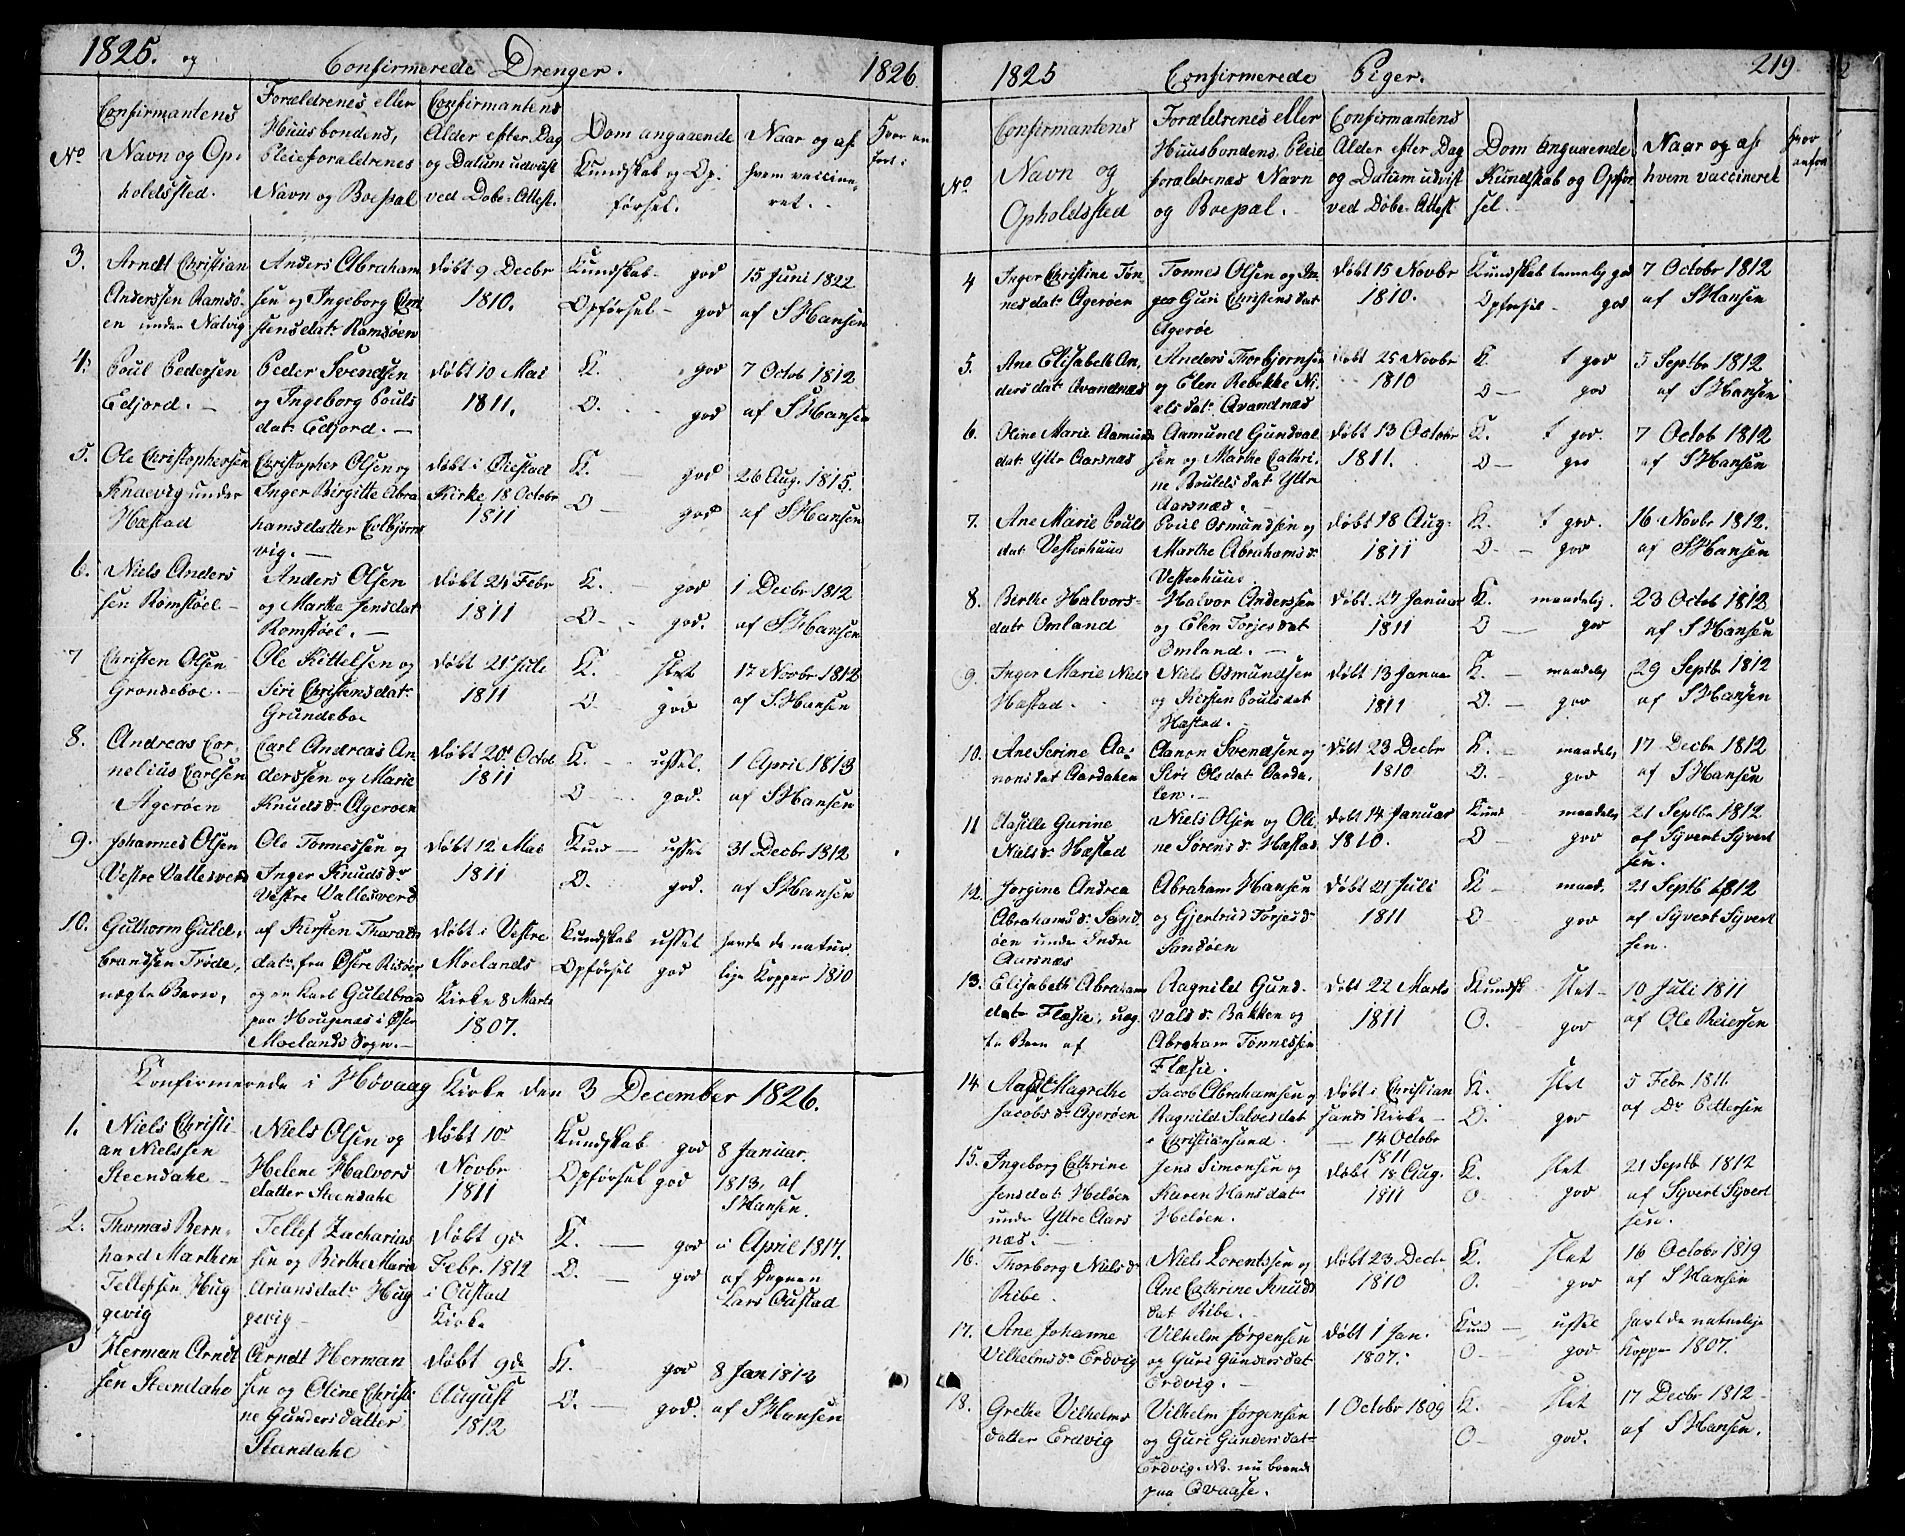 1825. og Confirmerede Drenger. 1826
No
Confirmantens
Navn og Op-
holdssted.
Forældrenes eller
Huusbondens,
Pleieforældrenes
Navn og Boepæl
Confirmantens
Alder efter Dag
og Datum udviist
ved Døbe-Attest.
Dom angaaende
Kundskab og Op-
førsel.
Naar og af
hvem vaccine-
ret.
3. Arndt Christian
Anderssen Ramsø-
en under Natvig
Anders Abraham
sen og Ingeborg
stensdatr Ramsøen
døbt 9 Decbr
1810.
Kundskab- god
Opførsel- god
15 Juni 1822
af SHansen
4. Poul Pedersen
Edjord.
Peder Svendsen
og Ingeborg Pouls
datr Edjord.
døbt 10 Mai
1811.
K. god
O. god
7 Octob 1812
af SHansen
5. Ole Christophersen
Knævig under
Hæstad
Christopher Olsen og
Inger Birgitte Abra
hamsdatter
vig.
døbt i Øiestad
Kirke 18 Octobr
1811
K. god
O god
26 Aug. 1815.
af SHansen
6. Niels Anders
sen Romstøel
Anders Olsen
og Marthe Jensdat
Romstøel.
døbt 24 Febr
1811
K. god
O- god.
1 Decbr 1812
af SHansen
7 Christen Olsen
Grondeboe.
Ole Kittelsen og
Siri Christensdatr
Grundeboe
døbt 21 Juli
1811
K. slet
O. god
17 Novbr 1812
af S.Hansen
8. Andreas Cor-
nelius Carlsen
Agerøen
Carl Andreas An
derssen og Marie
Knudsdr Agerøen
døbt 20 Octob
1811
K. ussel.
O god.
1 April 1813
af SHansen
9. Johannes Olsen
Vestre Vallesverd
Ole Tønnessen og
Inger Knudsdr
Vestre Vallesverd
døbt 12 Mai
1811
Kun ussel
O. god.
31 Decbr 1812
af SHansen
10. Guthorm Guld-
brandsen Trøde,
uægte Barn,
af Kirsten Tharalds
datr fra Østre Risøer
og en Karl Guldbran
paa Hougenes i Øster
Moelands Sogn.
døbt i Vestre
Moelands
Kirke 8 Marts
1807.
Kundskab ussel
Opførsel god
havde de natur
lige Kopper 1810
Konfirmerede i Høvaag Kirke den 3 December 1826.
1. Niels Christi-
an Nielssen
Steendahe
Niels Olsen og
Helene Halvors
datter Steendahe
døbt 10
Novbr
1811
Kundskab god
Opførsel god
8 Januar.
1813, af
SHansen.
2. Thomas Bern-
hard Marthen
Tellefsen Hug
gevig
Tellef Zacharias
sen og Birthe Marie
Ariansdatr Hug
gevig
døbt 9de
Febr. 1812
i Oustad
Kirke
K. god
O. god
April 1817.
af
Lars Oustad
3 Herman Arndt
sen Steendahe
Arndt Herman
sen og Oline Christi
ne Gundersdatter
Steendahe
døbt 9de
August
1812
K. god
O. god.
8 Jan 1813
af SHansen
1825 Confirmerede Piger. 219
No.
Confirmantens
Navn og
Opholdssted
Forældrenes eller
Huusbondens Pleie
forældrenes Navn
og Boepæl.
Confirmantens
Alder efter Dag
og Datum udvist
ved Døbe-Attest
Dom Angaaende
Kundskab og Opfør
sel.
Naar og af
hvem vaccineret
4 Inger Christine Tøn-
nesdatr Agerøen
Tønnes Olsen og
Guri Christensdat
Agerøe
døbt 15 Novbr
1810.
Kundskab temelig god
Opførsel god
7 Octobr 1812
af SHansen
5. Ane Elisabeth An-
dersdatr Avandnæs
Anders Thorbjørnsen
og Elen Rebekke Ni-
elsdatr Avandnæs
døbt 25 Novbr
1810
K. t god
O god
5 Septbr 1812
af SHansen
6. Oline Marie Aamunds
datr Yttre Aarsnæs
Aamund Gundval
sen og Marthe Cathri-
ne Rouldsdat Yttre
Aarsnæs.
døbt 13 Octobr
1811.
K. t god.
O god
7 Octob 1812
af SHansen
7. Ane Marie Pouls
dat Vesterhuus
Poul Osmundsen og
Marthe Abrahamsd.
Vesterhuus
døbt 18 Aug.
1811
K. t god.
O- god
16 Novbr 1812.
af SHansen
8. Birthe Halvors-
datr Omland
Halvor Anderssen
og Elen Torjesdat
Omland.
døbt 27 Januar
1811
K. maadelig.
O god
23 Octob 1812
af SHansen
9. Inger Marie Niels
Hæstad.
Niels Osmundsen
og Kirsten Poulsdat
Hæstad.
døbt 13 Januar
1811
K. maadelig
O. god
29 Septb 1812
af SHansen
10. Ane Serine Aa-
nonsdat Aardahlen
Aanon Svendsen og
Siri Olsdat Aarda-
len.
døbt 23 Decbr
1810
K. maadelig
O. god
17 Decbr 1812
af SHansen
11 Aasille Gurine
Nielsdr Hæstad
Niels Olsen og Oli
ne Sørensdr Hæstad
døbt 14 Januar
1810.
Kund maadelig
O god
21 Septbr 1812
af Syvert Syvert
sen.
12. Jorgine Andrea
Abrahamsdr Sand-
øen under Indre
Aarsnæs
Abraham Hansen
og Gjertrud Torjesdr
Sandøen
døbt 21 Juli
1811
K maad.
O god
21 Septb 1812
af Syvert Syvert
sen.
13. Elisabeth Abraham
datr Flæsie, uæg
te Barn af
Ragnild Gund-
valsdr Bakken og
Abraham Tønnessen
Flæsie.
døbt 22 Marts
1811
Kundsk slet
O. god
10 Juli 1811
af Ole Reiersen
14. Magrethe
Jacobsdr Agerøen
Jacob Abrahamsen og
Ragnild Salvesdat
Christiansand.
døbt i Christian
sands Kirke
14 Octobr
1811
K. slet
O. god
5 Febr 1811.
af Dr Pettersen
15. Ingeborg Cathrine
Jensdat Heløen
under Yttre Aars
næs.
Jens Simonsen og
Karen Hansdatr
Heløen.
døbt 18 Aug.
1811
K. slet
O. god
21 Septb 1812
af Syvert Syvert
sen.
16. Thorborg Nielsdr
Ribe.
Niels Lorentssen og
Ane Cathrine Knuds
dat Ribe.
døbt 23 Decbr
1810
K. slet
O. god
16 Octobr 1819
af SHansen
17. Ane Johanne
Vilhelmsdr Erdvig
Vilhelm Jørgensen
og Guri Gundersdat
Erdvig.
døbt 1 Jan.
1807.
Kund ussel
O god
havt de naturlige
Kopper 1807.
18. Grethe Vilhelms
datter Erdvig
Vilhelm Jørgensen
og Guri Gundersdat
Erdvig. NB. nu boende
paa Qvaase.
1 Octobr 1809
K. slet
O god.
17 Decbr 1812
af SHansen.